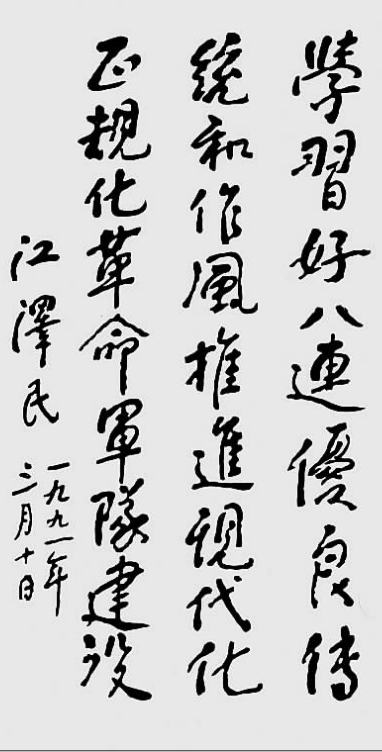 學習好八連優良傳
統和作風推進現代化
正規化革命軍隊建设
江澤民
一九九一年
三月十日